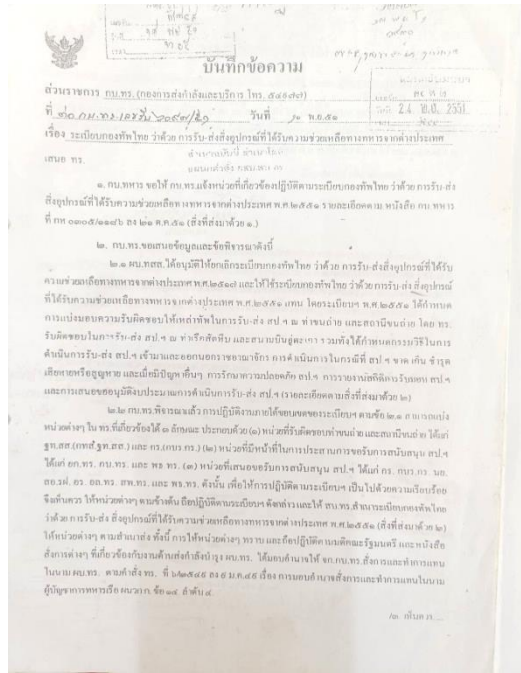 บันทึกข้อความ
ส่วนราชการ กบ.ทร. (กองการส่งกำลังและบริการ โทร. ๕๔๗๗๗)
ที่ วันที่ พ.ย.๕๑
เรื่อง ระเบียบกองทัพไทย ว่าด้วย การรับ-ส่งสิ่งอุปกรณ์ที่ได้รับความช่วยเหลือทางทหารจากต่างประเทศ
เสนอ ทร.
๑. กบ.ทหาร ขอให้ กบ.ทร.แจ้งหน่วยที่เกี่ยวข้องปฏิบัติตามระเบียบกองทัพไทย ว่าด้วย การรับ-ส่ง
สิ่งอุปกรณ์ที่ได้รับความช่วยเหลือทางทหารจากต่างประเทศ พ.ศ.๒๕๕๑ รายละเอียดตาม หนังสือ กบ.ทหาร
ที่ กห ๐๓๐๕/๑๑๘๖ ลง ๒๑ ต.ค.๕๑ (สิ่งที่ส่งมาด้วย ๑.)
๒. กบ.ทร.ขอเสนอข้อมูลและข้อพิจารณาดังนี้
๒.๑ ผบ.ทสส.ได้อนุมัติให้ยกเลิกระเบียบกองทัพไทย ว่าด้วย การรับ-ส่งสิ่งอุปกรณ์ที่ได้รับ
ความช่วยเหลือทางทหารจากต่างประเทศ พ.ศ.๒๕๑๗ และให้ใช้ระเบียบกองทัพไทย ว่าด้วย การรับ-ส่ง สิ่งอุปกรณ์
ที่ได้รับความช่วยเหลือทางทหารจากต่างประเทศ พ.ศ.๒๕๕๑ แทน โดยระเบียบฯ พ.ศ.๒๕๕๑ ได้กำหนด
การแบ่งมอบความรับผิดชอบให้เหล่าทัพในการรับ-ส่ง สป.ฯ ณ ท่าขนถ่าย และสถานีขนถ่าย โดย ทร.
รับผิดชอบในการรับ-ส่ง สป.ฯ ณ ท่าเรือสัตหีบ และสนามบินอู่ตะเภา รวมทั้งได้กำหนดกรรมวิธีในการ
ดำเนินการรับ-ส่ง สป.ฯ เข้ามาและออกนอกราชอาณาจักร การดำเนินการในกรณีที่ สป.ฯ ขาด เกิน ชำรุด
เสียหายหรือสูญหาย และเมื่อมีปัญหาอื่นๆ การรักษาความปลอดภัย สป.ฯ การรายงานสถิติการรับมอบ สป.ฯ
และการเสนอขออนุมัติงบประมาณการดำเนินการรับ-ส่ง สป.ฯ (รายละเอียดตามสิ่งที่ส่งมาด้วย ๒)
๒.๒ กบ.ทร.พิจารณาแล้ว การปฏิบัติงานภายใต้ขอบเขตของระเบียบฯ ตามข้อ ๒.๑ สามารถแบ่ง
หน่วยต่างๆ ใน ทร.ที่เกี่ยวข้องได้ ๓ ลักษณะ ประกอบด้วย (๑) หน่วยที่รับผิดชอบท่าขนถ่าย และสถานีขนถ่าย ได้แก่
ฐท.สส.(กทส.ฐท.สส.) และ กร.(กบร.กร.) (๒) หน่วยที่มีหน้าที่ในการประสานการขอรับการสนับสนุน สป.ฯ
ได้แก่ ยก.ทร. กบ.ทร. และ พธ.ทร. (๓) หน่วยที่เสนอขอรับการสนับสนุน สป.ฯ ได้แก่ กร. กบร.กร. นย.
สอ.รฝ. อร. อล.ทร. สพ.ทร. และ พธ.ทร. ดังนั้น เพื่อให้การปฏิบัติตามระเบียบฯ เป็นไปด้วยความเรียบร้อย
จึงเห็นควร ให้หน่วยต่างๆ ตามข้างต้น ถือปฏิบัติตามระเบียบฯ ดังกล่าวและให้ สบ.ทร.สำเนาระเบียบกองทัพไทย
ว่าด้วย การรับ-ส่ง สิ่งอุปกรณ์ที่ได้รับความช่วยเหลือทางทหารจากต่างประเทศ พ.ศ.๒๕๕๑ (สิ่งที่ส่งมาด้วย ๒)
ให้หน่วยต่างๆ ตามสำเนาส่ง ทั้งนี้ การให้หน่วยต่างๆ ทราบ และถือปฏิบัติตามมติคณะรัฐมนตรี และหนังสือ
สั่งการต่างๆ ที่เกี่ยวข้องกับงานด้านส่งกำลังบำรุง ผบ.ทร. ได้มอบอำนาจให้ จก.กบ.ทร.สั่งการและทำการแทน
ในนาม ผบ.ทร. ตามคำสั่ง ทร. ที่ ๖/๒๕๔๙ ลง ๙ ม.ค.๔๙ เรื่อง การมอบอำนาจสั่งการและทำการแทนในนาม
ผู้บัญชาการทหารเรือ ผนวก ก. ข้อ ๑๔. ลำดับ ๔.